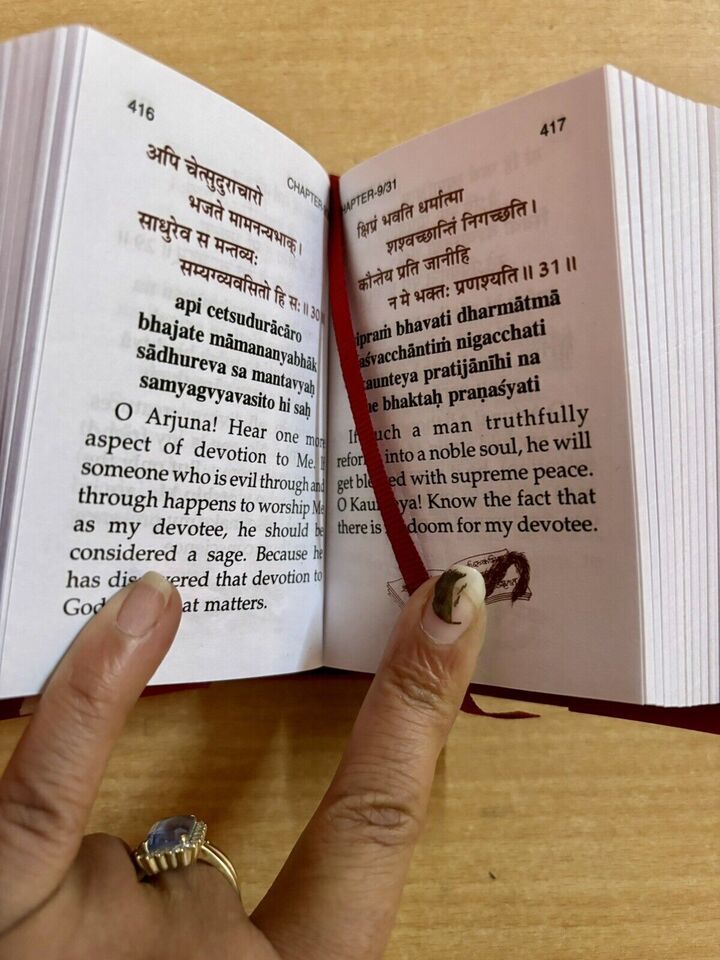 416
CHAPTER-
अपि चेत्सुदुराचारो
भजते मामनन्यभाक्।
साधुरेव स मन्तव्यः
सम्यग्व्यवसितो हि सः॥30
api cetsudurācāro
bhajate māmananyabhāk
sādhureva sa mantavyaḥ
samyagvyavasito hi saḥ
O Arjuna! Hear one more
aspect of devotion to Me.
someone who is evil through and
through happens to worship Me
as my devotee, he should be
considered a sage. Because he
has that devotion to
God at matters.
417
CHAPTER-9/31
क्षिप्रं भवति धर्मात्मा
शश्वच्छान्तिं निगच्छति।
कौन्तेय प्रति जानीहि
न मे भक्तः प्रणश्यति॥31॥
ipraṁ bhavati dharmātmā
aśvacchāntiṁ nigacchati
kaunteya pratijānīhi na
me bhaktaḥ praṇaśyati
If such a man truthfully
into a noble soul, he will
get with supreme peace.
O Know the fact that
there is doom for my devotee.